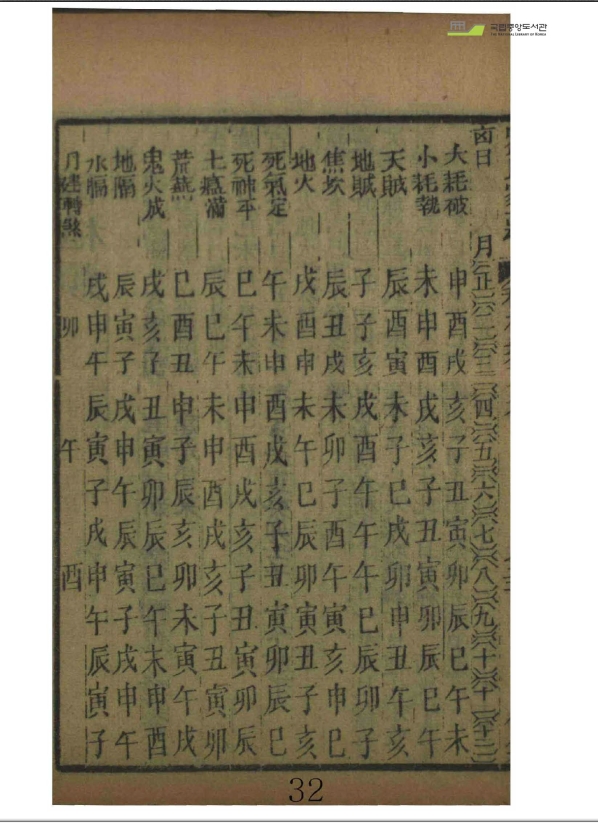 국립중앙도서관
THE NATIONAL LIBRARY OF KOREA
日 月 正 二 三 四 五 六 七 八 九 十 十一 十二
大耗破 申酉戌亥子丑寅卯辰巳午未
小耗執 未申酉戌亥子丑寅卯辰巳午
天賊 辰酉寅未子巳戌卯申丑午亥
地賊 子子亥戌酉午午午巳辰卯子
焦坎 辰丑戌未卯子酉午寅亥申巳
地火 戌酉申未午巳辰卯寅丑子亥
死氣定 午未申酉戌亥子丑寅卯辰巳
死神平 巳午未申酉戌亥子丑寅卯辰
土瘟滿 辰巳午未申酉戌亥子丑寅卯
荒蕪 巳酉丑申子辰亥卯未寅午戌
鬼火成 戌亥子丑寅卯辰巳午未申酉
地隔 辰寅子戌申午辰寅子戌申午
水隔 戌申午辰寅子戌申午辰寅子
月建轉煞 卯 午 酉
32